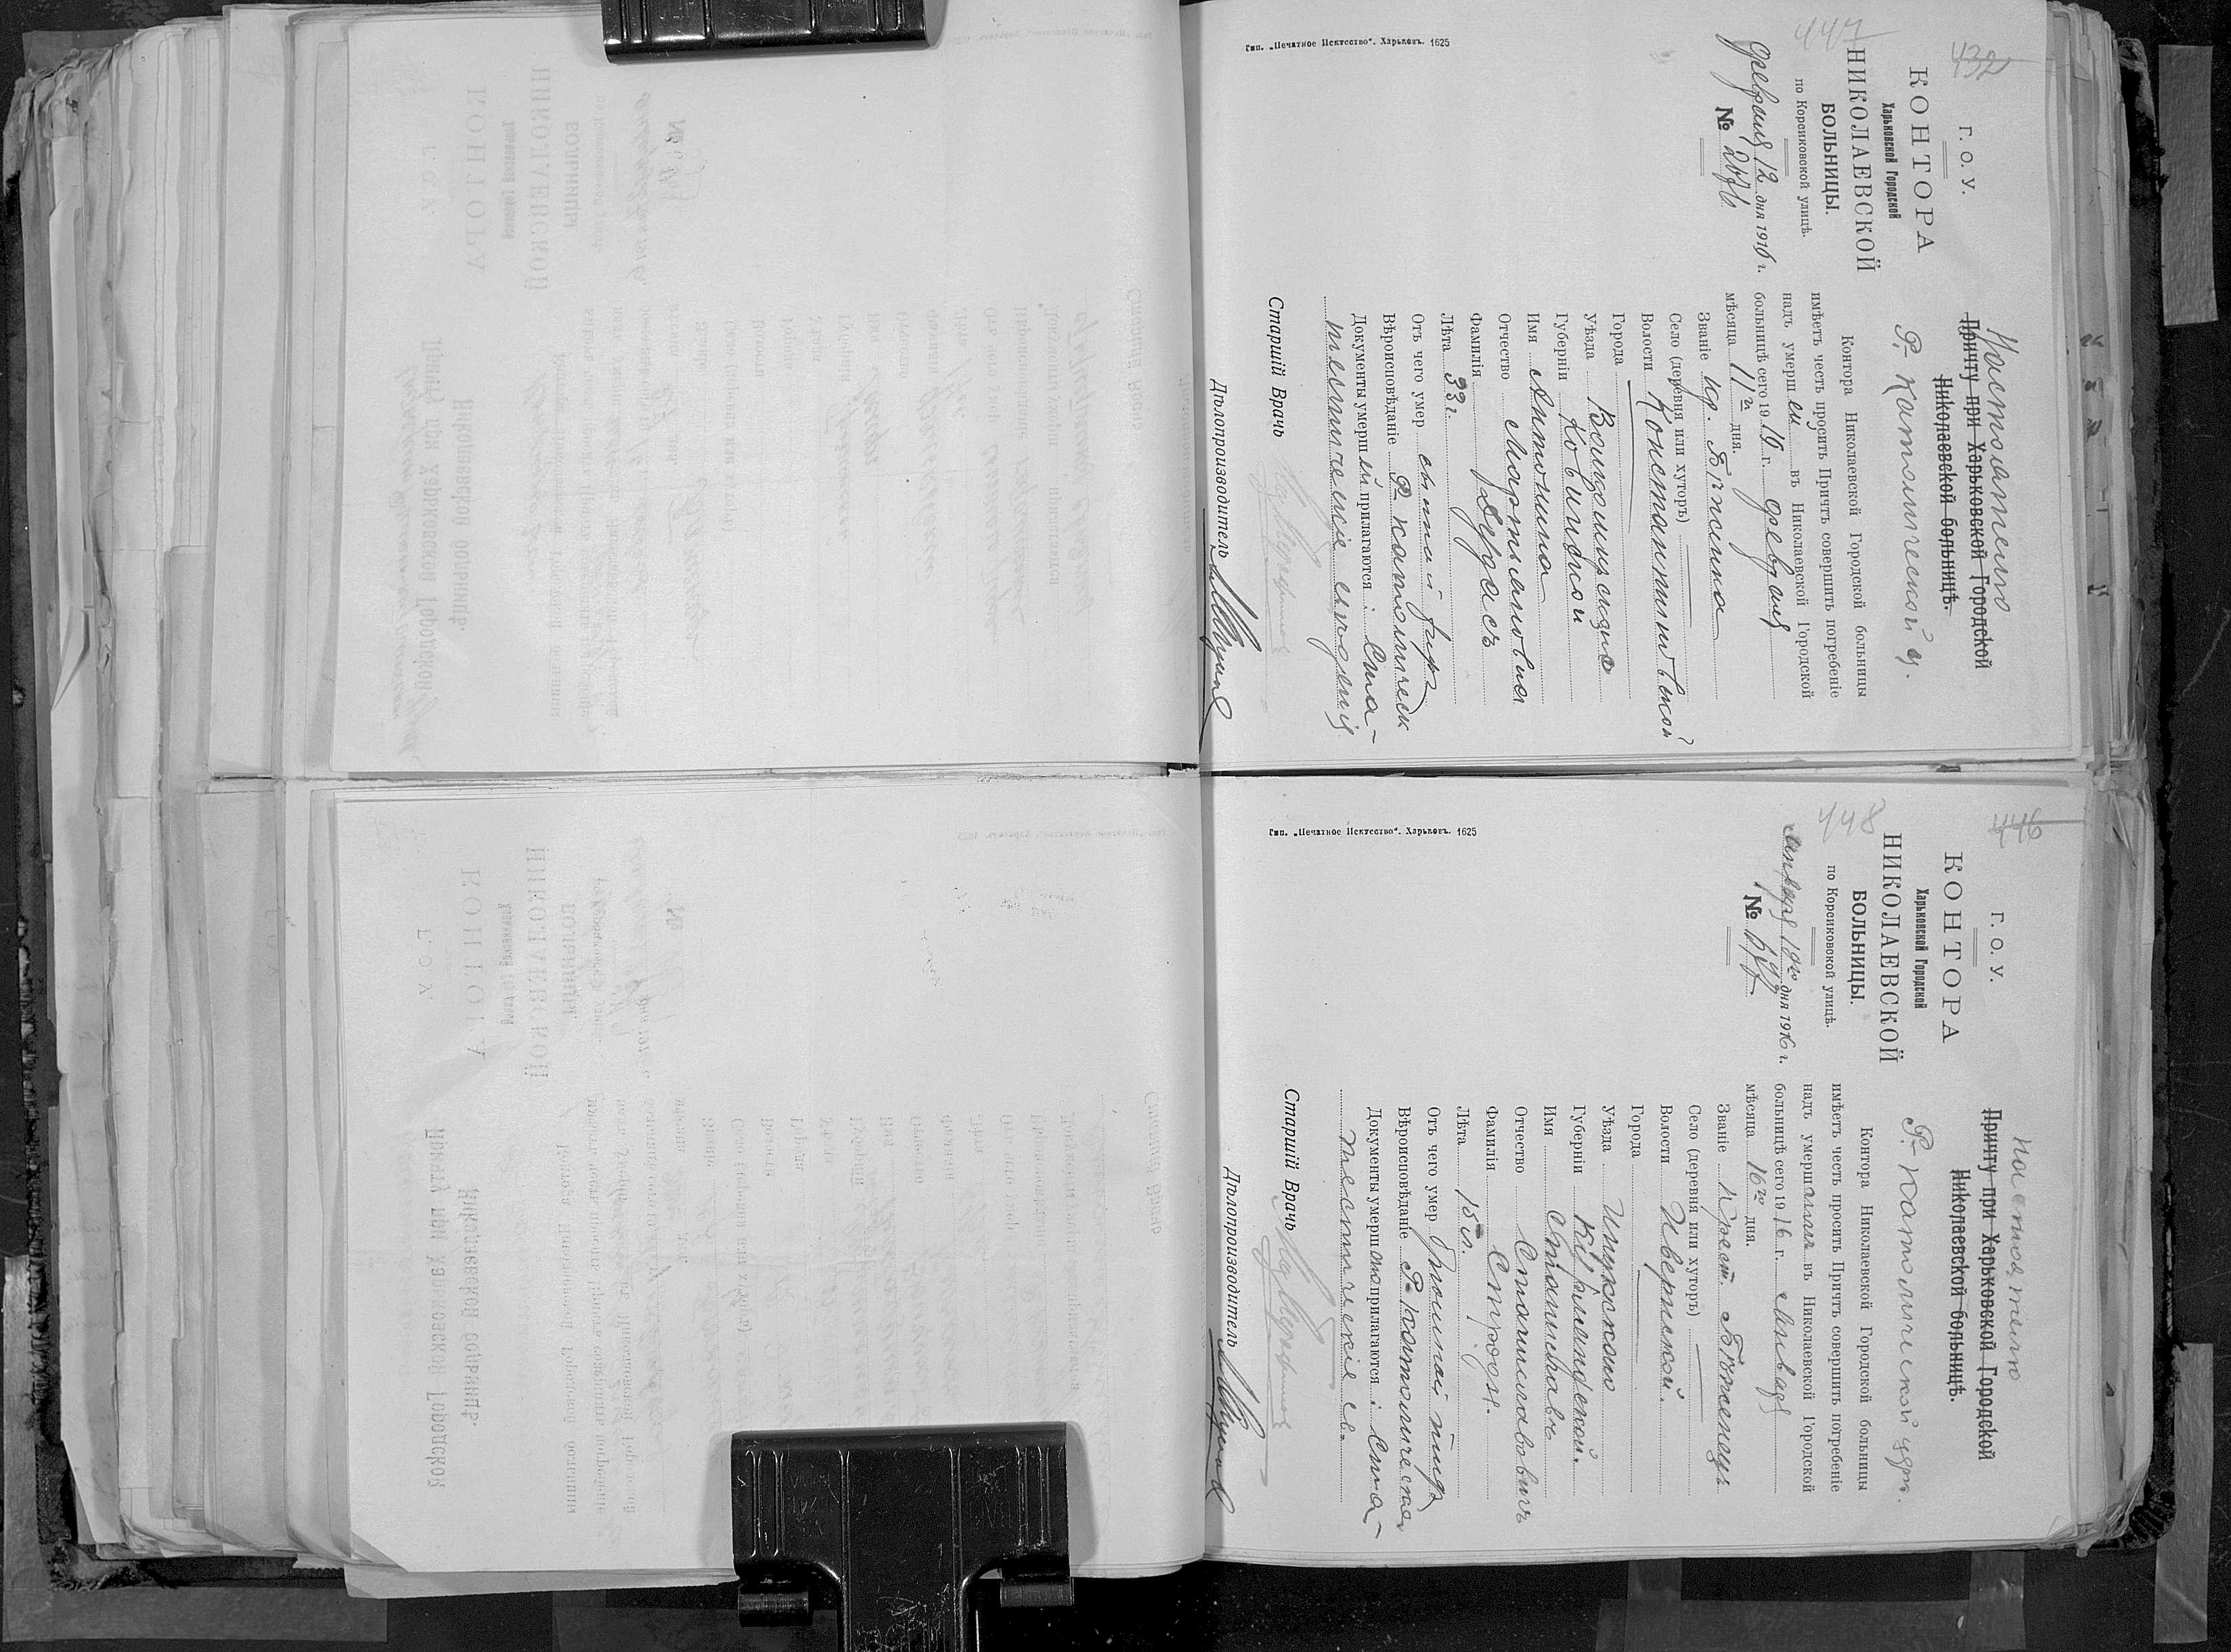 432
447
Г. О. У.
КОНТОРА
Харьковской Городской
НИКОЛАЕВСКОЙ
БОЛЬНИЦЫ.
по Корсиковской улицѣ.
февраля 12 дня 1916 г.
№ 2076
Настоятелю
Причту при Харьковской Городской
Николаевской больницѣ.
Р. Католической ц.
Контора Николаевской Городской больницы
имѣетъ честь просить Причтъ совершить погребеніе
надъ умерш ей въ Николаевской Городской
больницѣ сего 19 16 г. февраля
мѣсяца 11го дня.
Званіе Бѣженка
Село (деревня или хуторъ)
Волости Константиновской
Города
Уѣзда Вольомирскаго
Губерніи Ковинской
Имя Антонина
Отчество Мартыновна
Фамилія
Лѣта 33 г.
Отъ чего умер сыпной тиф
Вѣроисповѣданіе Р. католическ
Документы умерш ей прилагаются: Ста-
тистическіе свѣдѣнія
Старшій Врачъ
Дѣлопроизводитель
Тип. „Печатное Искусство“. Харьковъ. 1625
446
448
Г. О. У.
КОНТОРА
Харьковской Городской
НИКОЛАЕВСКОЙ
БОЛЬНИЦЫ.
по Корсиковской улицѣ.
Января 18го дня 1916 г.
№ 597
Настоятелю
Причту при Харьковской Городской
Николаевской больницѣ.
Р. Католической церк.
Контора Николаевской Городской больницы
имѣетъ честь просить Причтъ совершить погребеніе
надъ умершимъ въ Николаевской Городской
больницѣ сего 19 16 г. Января
мѣсяца 16го дня.
Званіе Крест. Бѣженецъ
Село (деревня или хуторъ)
Волости Иверской.
Города
Уѣзда Илукскаго
Губерніи Курляндской.
Имя Станиславъ
Отчество Станиславовичъ
Фамилія Стродъ.
Лѣта 15 л.
Отъ чего умер брюшной тиф
Вѣроисповѣданіе Р. Католическая
Документы умершаго прилагаются: Ста-
тистическіе св.
Старшій Врачъ
Дѣлопроизводитель
Тип. „Печатное Искусство“. Харьковъ. 1625